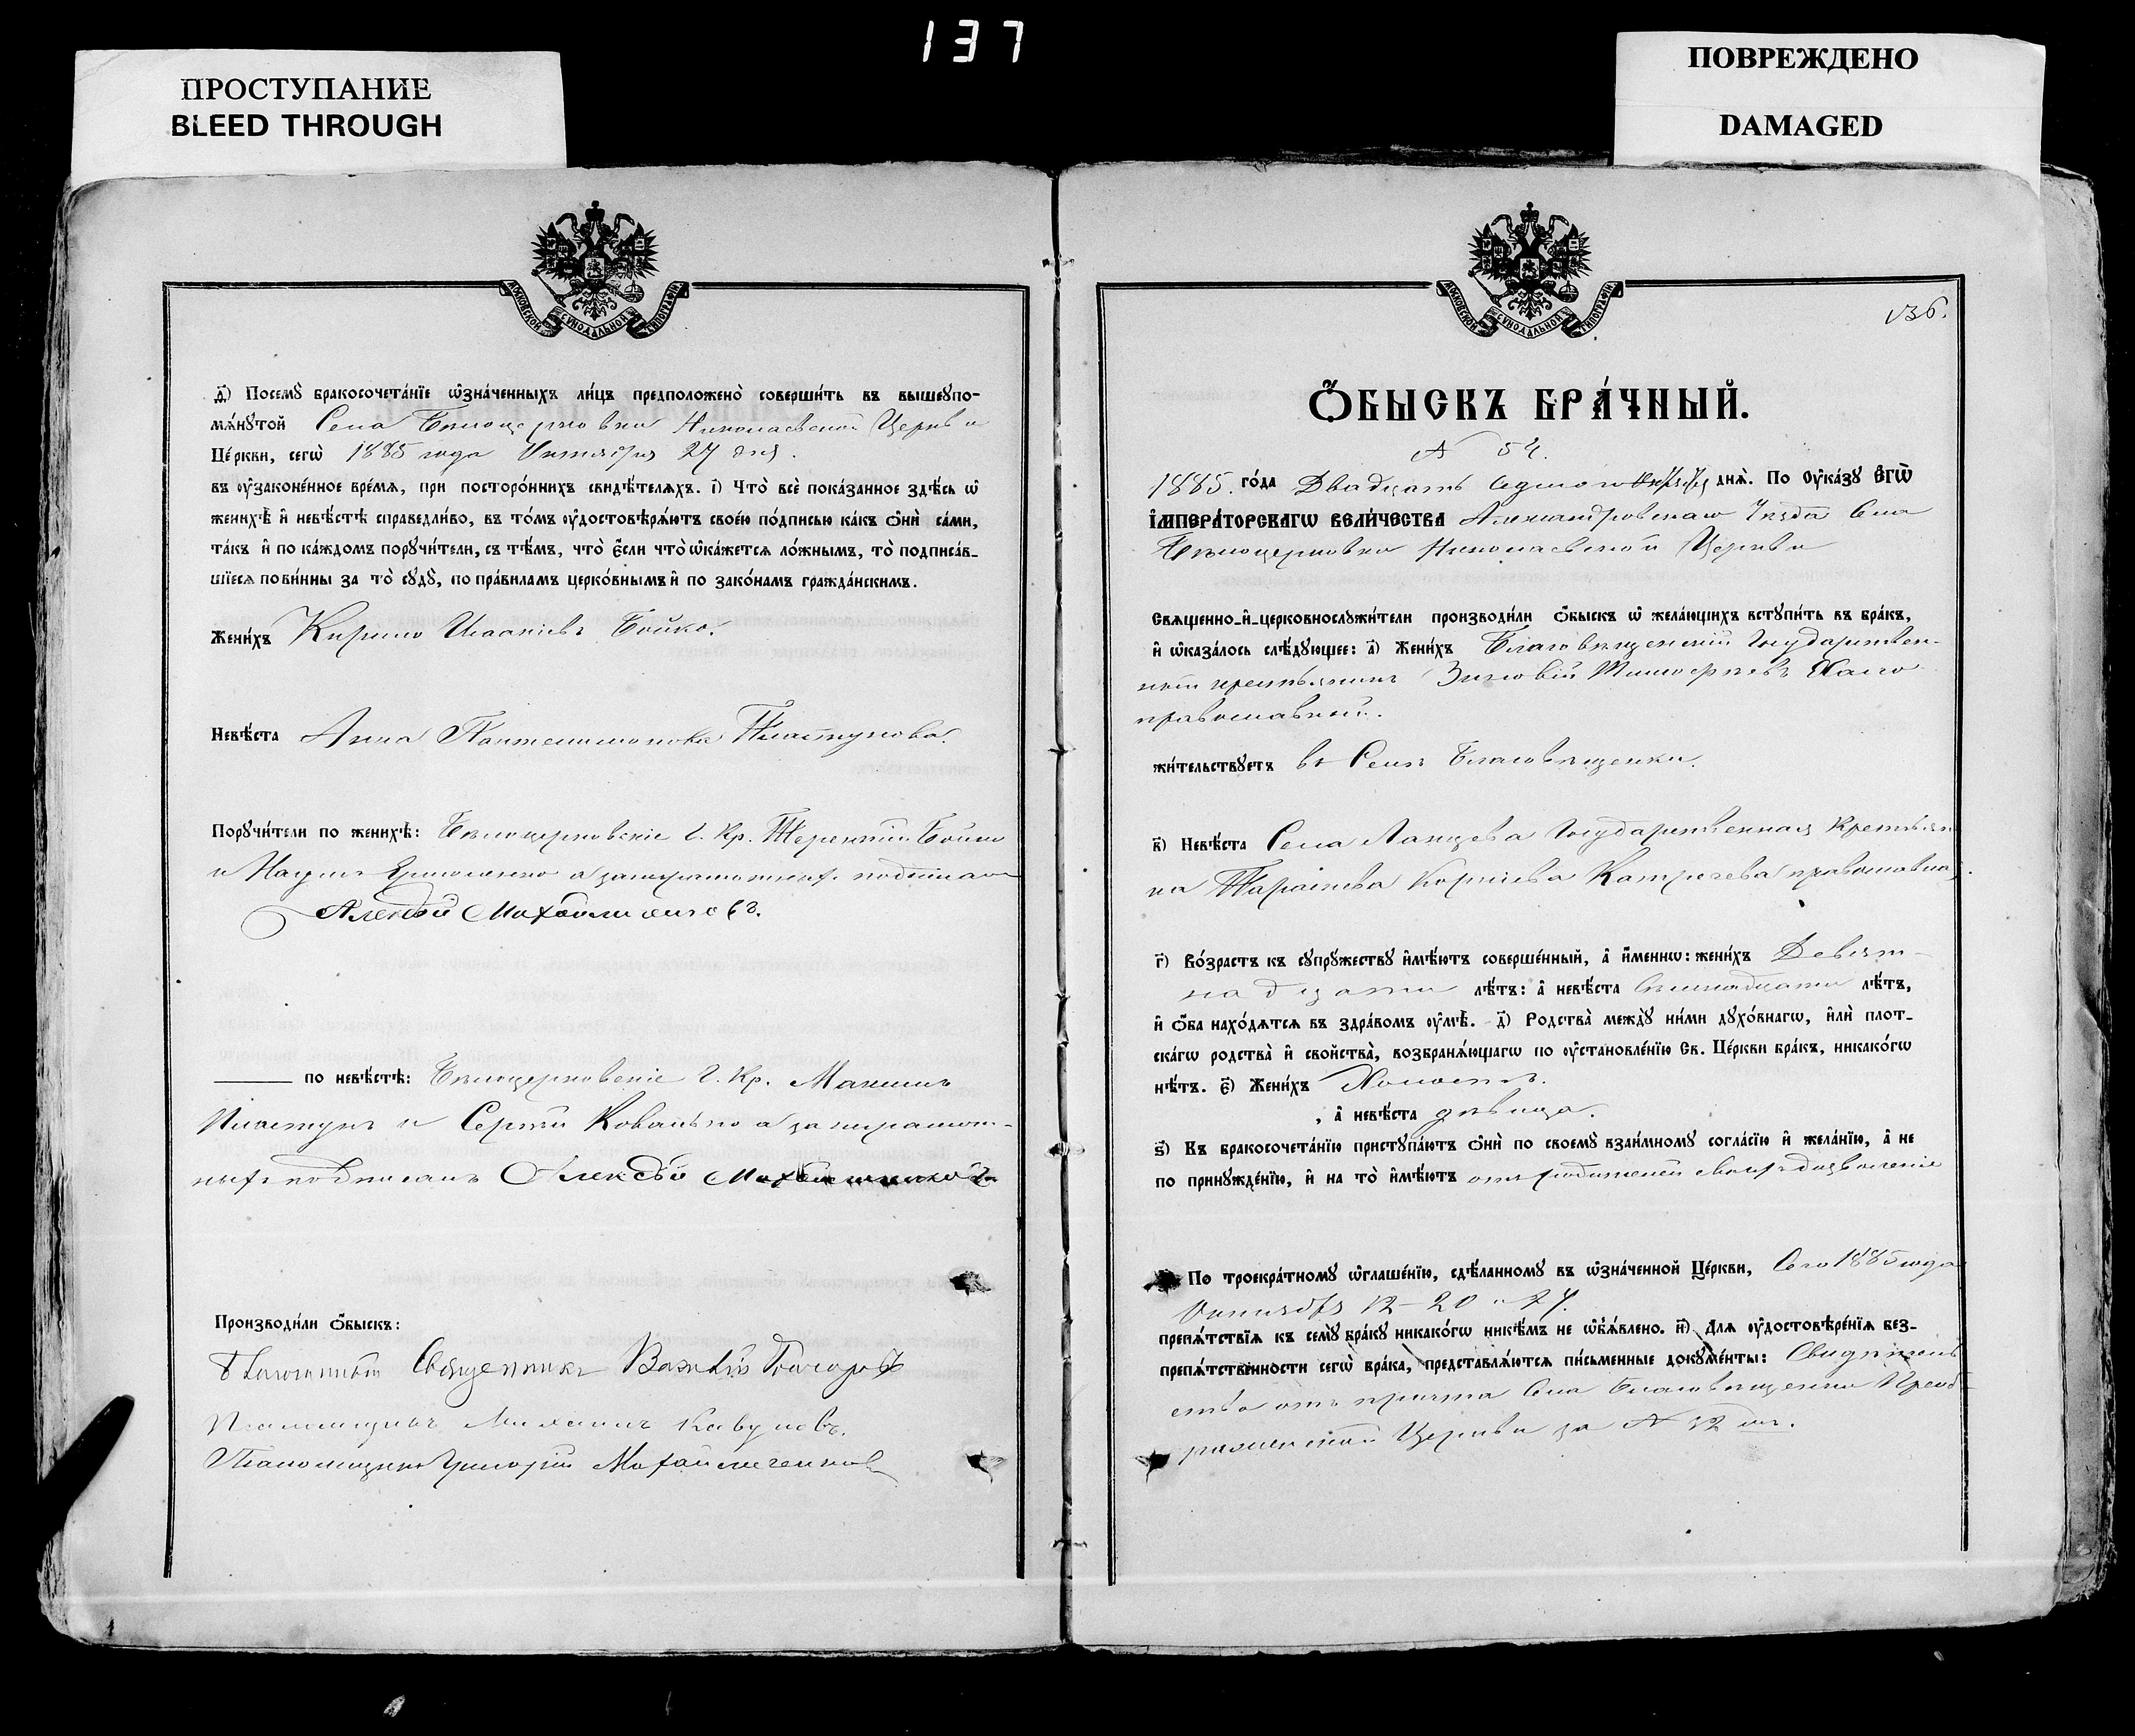 137
ПРОСТУПАНИЕ
BLEED THROUGH
ПОВРЕЖДЕНО
DAMAGED
МОСКОВСКОЙ СѴНОДАЛЬНОЙ ТИПОГРАФІИ
д҃) Посемꙋ̀ бракосочета́нїе ѡ҆зна́ченныхъ ли́цъ предположено̀ соверши́ть въ вышеꙋпо-
мѧ́нꙋтой Села Бѣлоцерковки Николаевской Церкви
Це́ркви, сегѡ̀ 1885 года Октября 27 дня.
въ ᲂу҆законе́нное вре́мѧ, при посторо́ннихъ свидѣ́телѧхъ. і҃) Что̀ всѐ пока́занное здѣ́сь ѡ҆
женихѣ̀ и҆ невѣ́стѣ справедли́во, въ то́мъ ᲂу҆достовѣрѧ́ютъ свое́ю по́дписью ка́къ ѻ҆нѝ са́ми,
та́къ и҆ по ка́ждомъ порꙋчи́тели, съ тѣ́мъ, что̀ є҆́сли что̀ ѡ҆ка́жетсѧ ло́жнымъ, то̀ подписа́в-
шїесѧ пови́нны за то̀ сꙋдꙋ̀, по пра́виламъ церко́внымъ и҆ по зако́намъ гражда́нскимъ.
Жени́хъ Кирило Бойко.
Невѣ́ста Анна Пантелимонова Пластунова.
Порꙋчи́тели по женихѣ̀: Бѣлоцерковскіе Г. Кр. Терентій Бойко
и Наумъ Ермоленко а за неграмотныхъ подписалъ
Алексѣй
по невѣ́стѣ: Бѣлоцерковскіе Г. Кр. Максимъ
Пластунъ и Сергѣй Ковалько а за неграмот-
ныхъ подписалъ Алексѣй
Производи́ли ѻ҆́быскъ:
Благочинный Священникъ
Псаломщикъ Михаилъ Кавуновъ.
Псаломщикъ Григорій
МОСКОВСКОЙ СѴНОДАЛЬНОЙ ТИПОГРАФІИ
136.
Ѻ҆́БЫСКЪ БРА́ЧНЫЙ.
№ 54.
1885. го́да Двадцать седьмого Октября днѧ̀. По Оу҆ка́зꙋ Е҆гѡ̀
І҆мпера́торскагѡ Вели́чества Александровскаго Уѣзда Села
Бѣлоцерковки Николаевской Церкви
Свѧщенно-и҆-церковнослꙋжи́тели производи́ли ѻ҆́быскъ ѡ҆ жела́ющихъ встꙋпи́ть въ бра́къ,
и҆ ѡ҆каза́лось слѣ́дꙋющее: а҃) Жени́хъ Благовѣщенскій Государствен-
ный крестьянинъ Зиновій Тимофѣевъ
православный.
жи́тельствꙋетъ въ Селѣ Благовѣщенки.
в҃) Невѣ́ста Села Государственная Крестьян
ка Параскева Корніева православная.
г҃) Во́зрастъ къ сꙋпрꙋжествꙋ и҆мѣ́ютъ соверше́нный, а҆ и҆́меннѡ: жени́хъ Девят-
надцати лѣ́тъ: а҆ невѣ́ста лѣ́тъ,
и҆ ѻ҆́ба нахо́дѧтсѧ въ здра́вомъ ᲂу҆мѣ̀. д҃) Родства̀ междꙋ̀ ни́ми дꙋхо́внагѡ, и҆лѝ плот-
ска́гѡ родства̀ и҆ свойства̀, возбранѧ́ющагѡ по ᲂу҆становле́нїю Св. Це́ркви бра́къ, никако́гѡ
нѣ́тъ. є҃) Жени́хъ Холостъ.
, а҆ невѣ́ста дѣвица.
ѕ҃) Къ бракосочета́нїю пристꙋпа́ютъ ѻ҆нѝ по своемꙋ̀ взаи́мномꙋ согла́сїю и҆ жела́нїю, а҆ не
по принꙋжде́нїю, и҆ на то̀ и҆мѣ́ютъ отъ родителей своихъ дозволеніе
По троекра́тномꙋ ѡ҆глаше́нїю, сдѣ́ланномꙋ въ ѡ҆зна́ченной Це́ркви, Сего 1885 года
Октября 12 - 20 и 27.
препѧ́тствїѧ къ семꙋ̀ бра́кꙋ никако́гѡ никѣ́мъ не ѡ҆б̾ѧ́влено. и҃) Длѧ ᲂу҆достовѣре́нїѧ без-
препѧ́тственности сегѡ̀ бра́ка, представлѧ́ютсѧ пи́сьменные докꙋме́нты: Свидѣтель
ство отъ причта Села Благовѣщенки Преоб-
раженской Церкви за № 32 мъ.